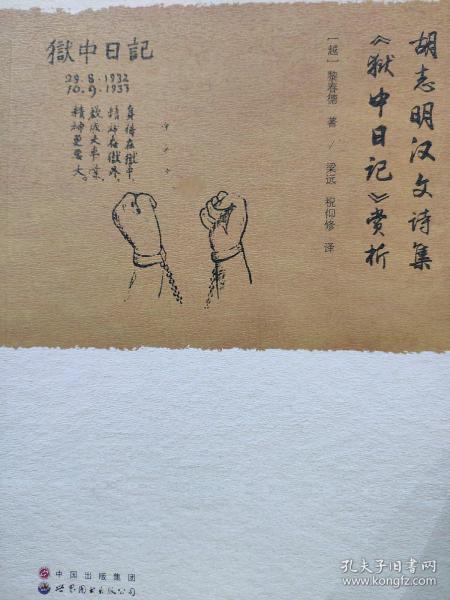 胡志明汉文诗集
《狱中日记》赏析
[越] 黎春德 著 / 梁远 祝仰修 译
獄中日記
29.8.1932
10.9.1933
身体在獄中，
精神在獄外，
欲成大事業，
精神更要大。
中国出版集团
世界图书出版公司
孔夫子旧书网
www.kongfz.com